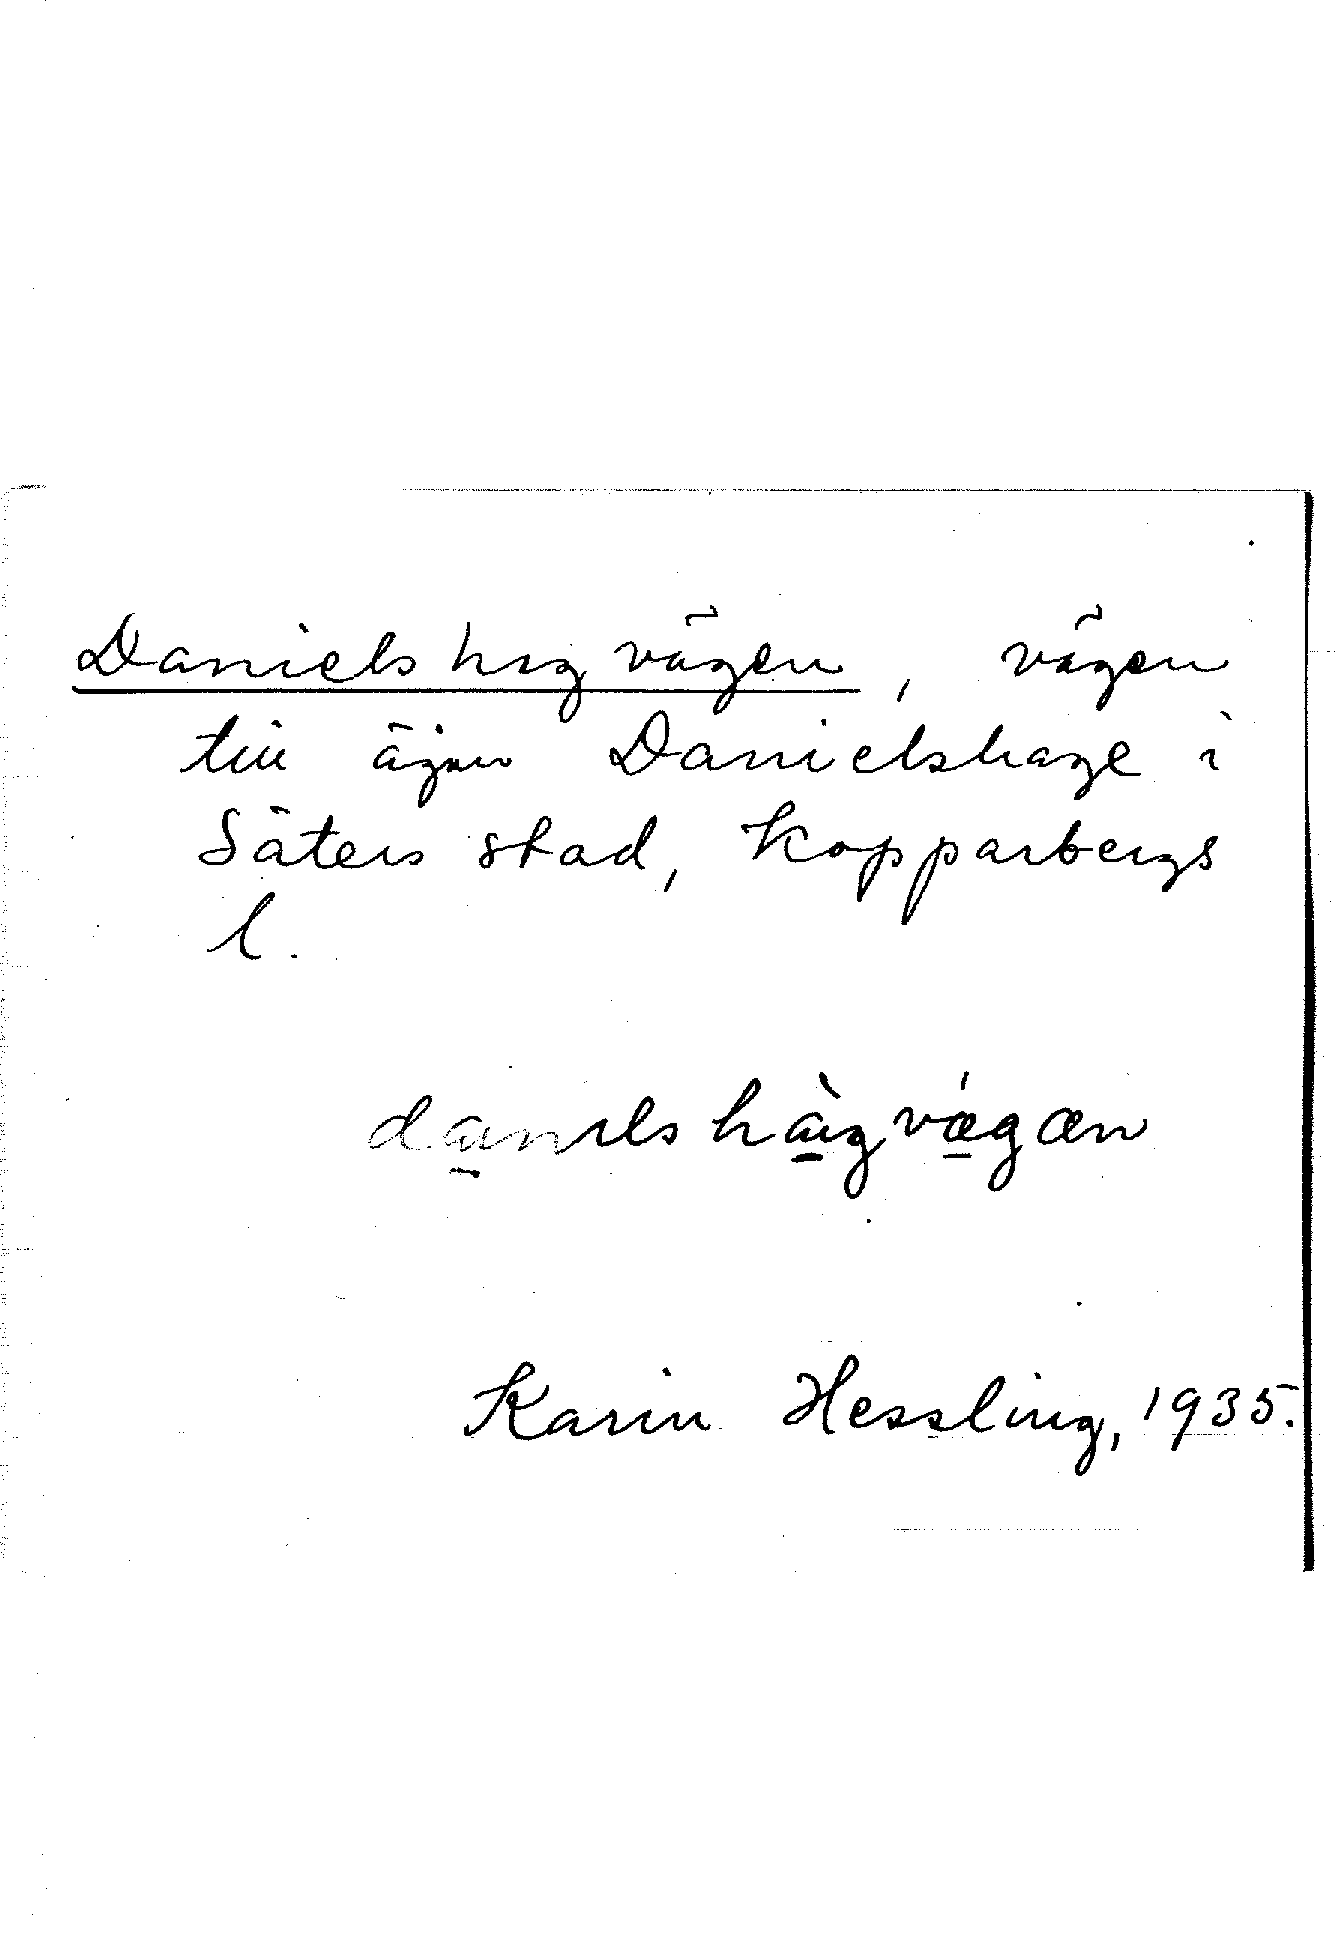 Danielshagvägen, vägen
till ägan Danielshage i
Säters stad, Kopparbergs
l.
Karin Hessling, 1935.